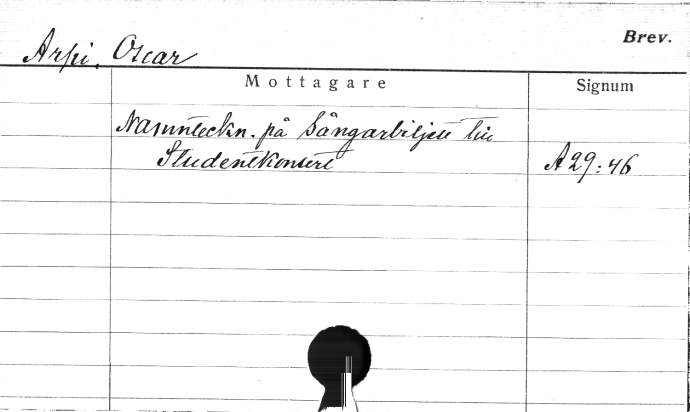 Brev.
Arpi, Oscar
Mottagare Signum
Namnteckn. på Sångarbiljett till
Studentkonsert A29:46